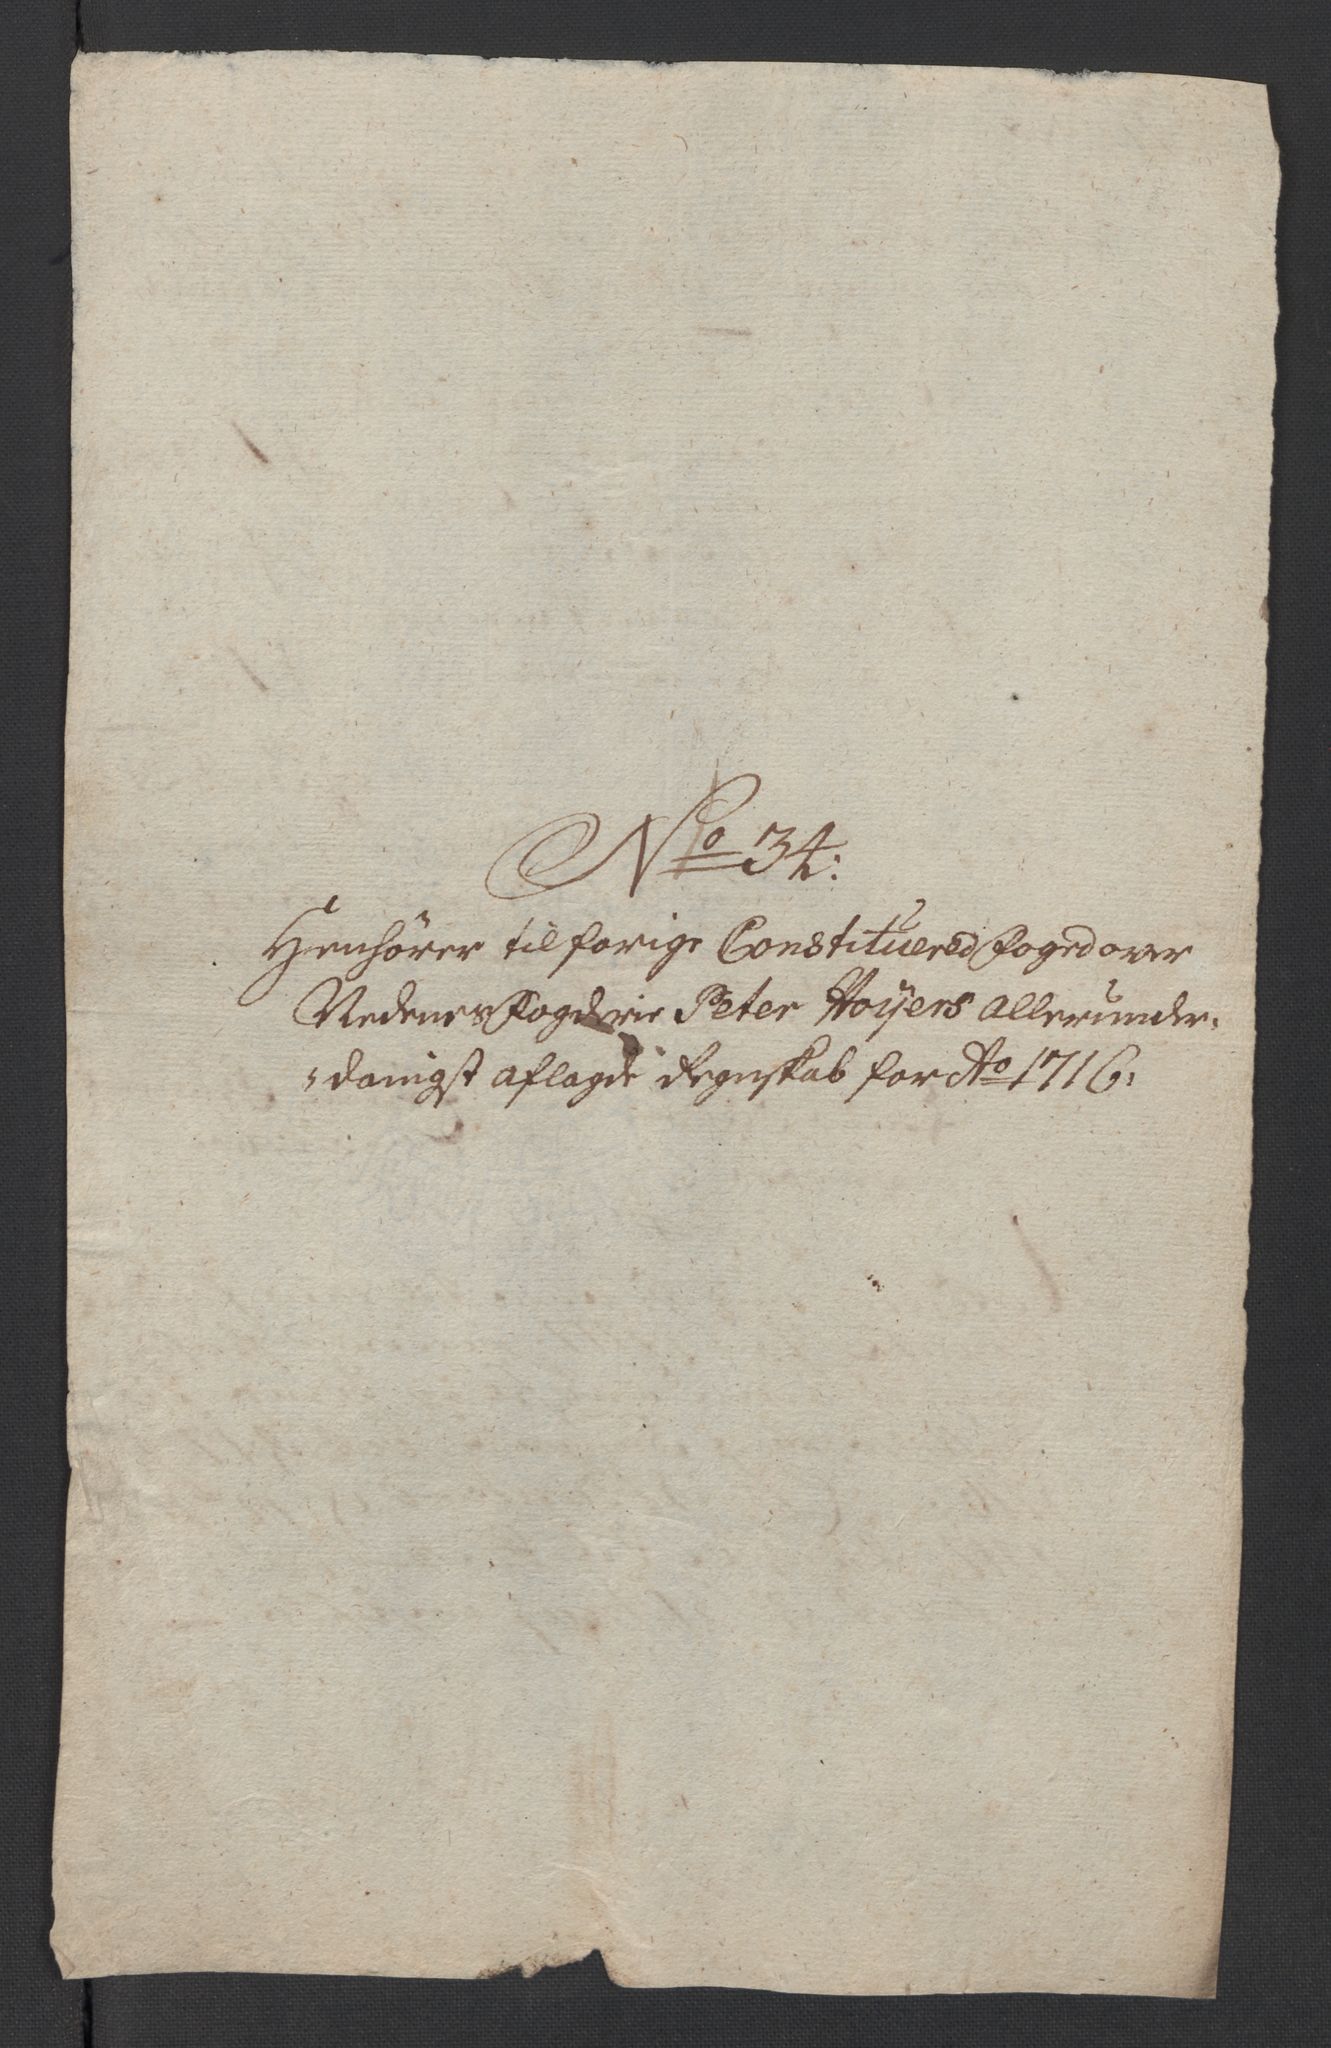 No 34:
Henhörer til forige Constituered foged over
Nedenes Fogderie Peter Hoÿers Allerunder-
-danigst aflagde Regnskab for Ao 1716: